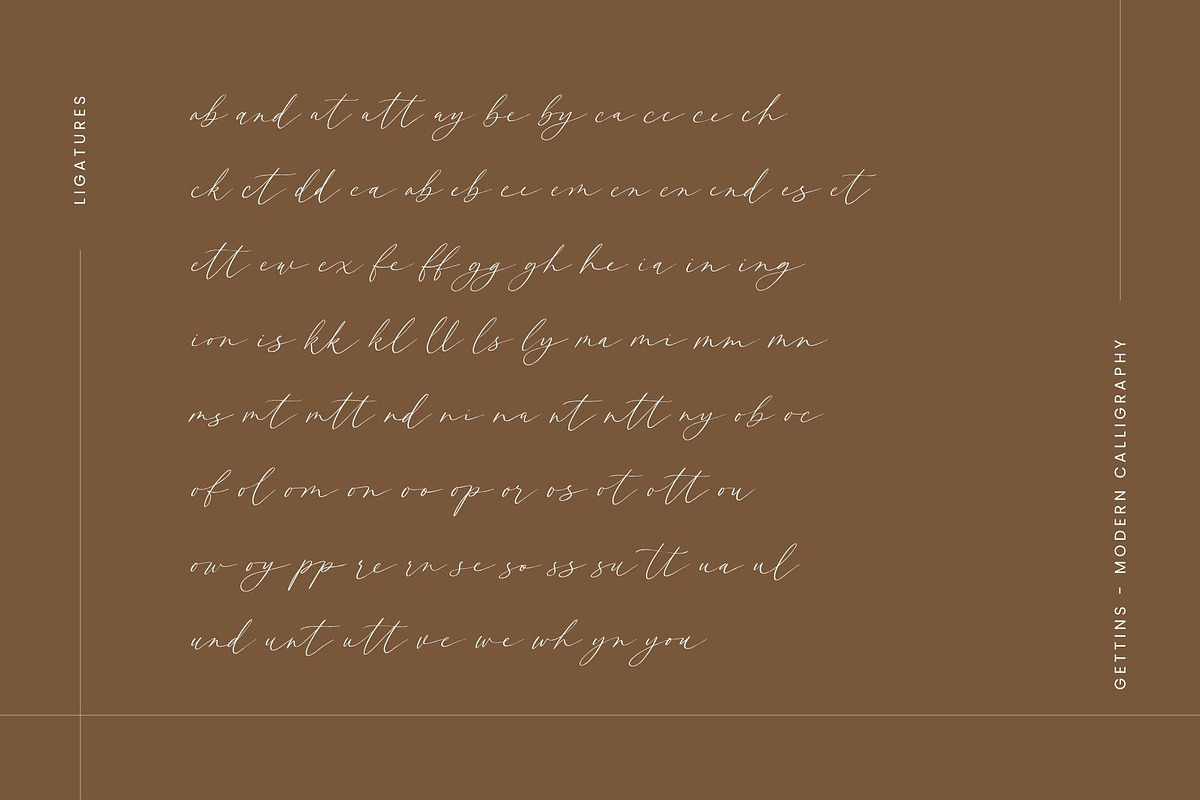 LIGATURES
ab and at att ay be by ca cc ce ch
ck ct dd ea ab eb ee em en en end es et
ett ew ex fe ff gg gh he ia in ing
ion is kk kl ll ls ly ma mi mm mn
ms mt mtt nd ni na nt ntt ny ob oc
of ol om on oo op or os ot ott ou
ow oy pp re rn se so ss su tt ua ul
und unt utt ve we wh yn you
GETTINS – MODERN CALLIGRAPHY